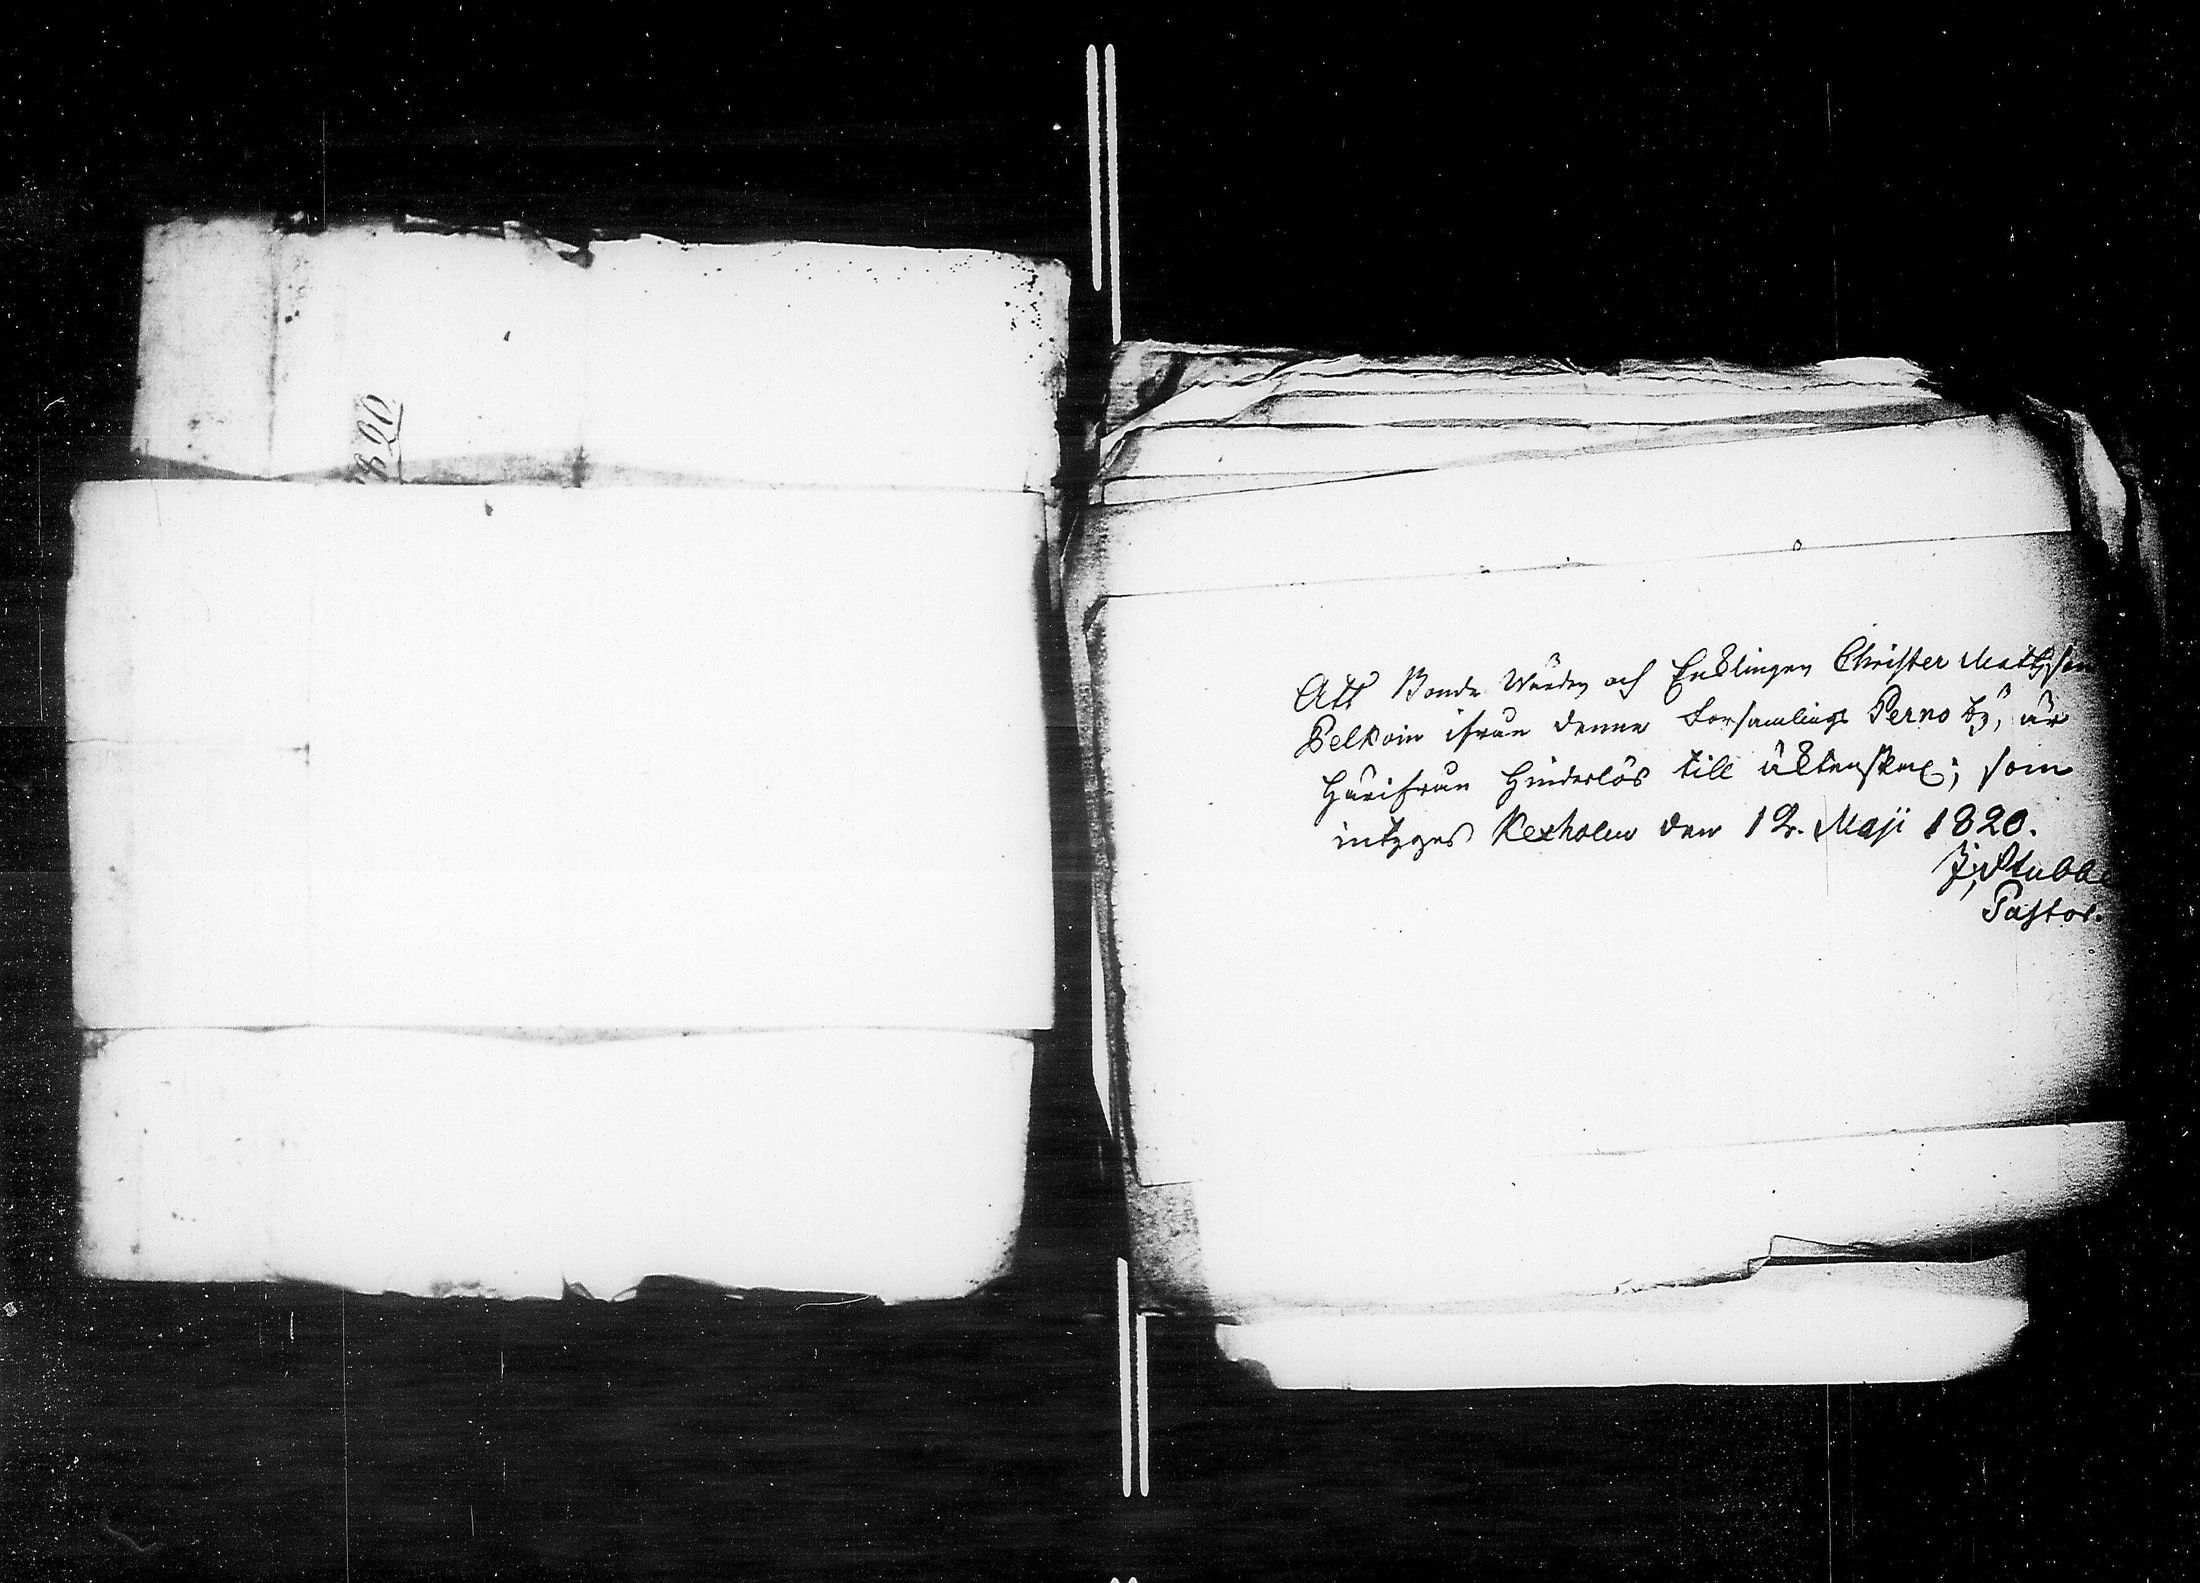 820
Att Bonde Wärden och Enklingen Christer Mattsson
Pelkoin ifrån denne Församlings Perno by, är
härifrån hinderlös till äktenskap; som
intygas Kexholm den 12. Maji 1820.
J. Stubbe
Pastor.